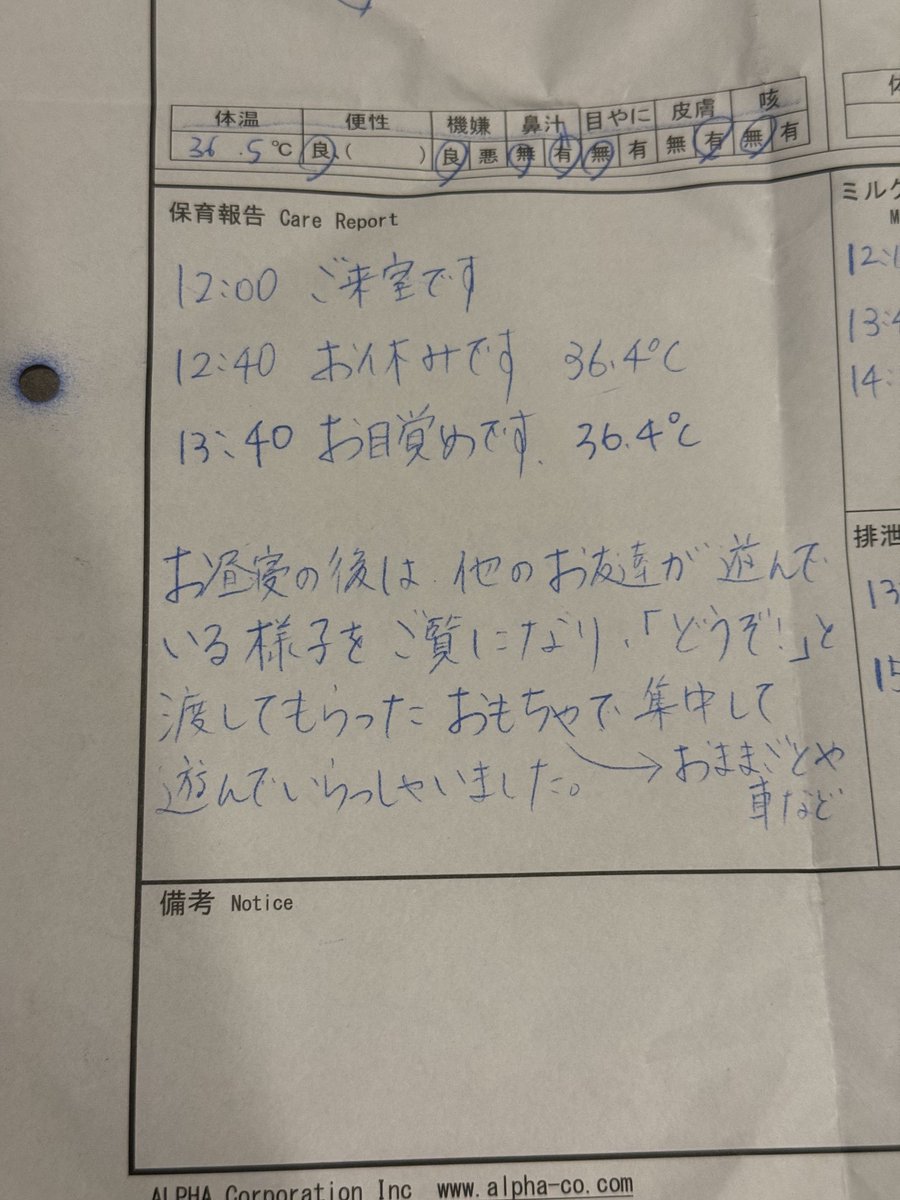 体温 便性 機嫌 鼻汁 目やに 皮膚 咳
36.5℃ 良・( ) 良 悪 無 有 無 有 無 有 無 有
保育報告 Care Report
12:00 ご来室です
12:40 お休みです 36.4℃
13:40 お目覚めです 36.4℃
お昼寝の後は、他のお友達が遊んで
いる様子をご覧になり、「どうぞ!」と
渡してもらったおもちゃで集中して
遊んでいらっしゃいました。→おままごとや
車など
備考 Notice
ALPHA Corporation Inc www.alpha-co.com
ミルク
13:4
14:
排泄
13
15